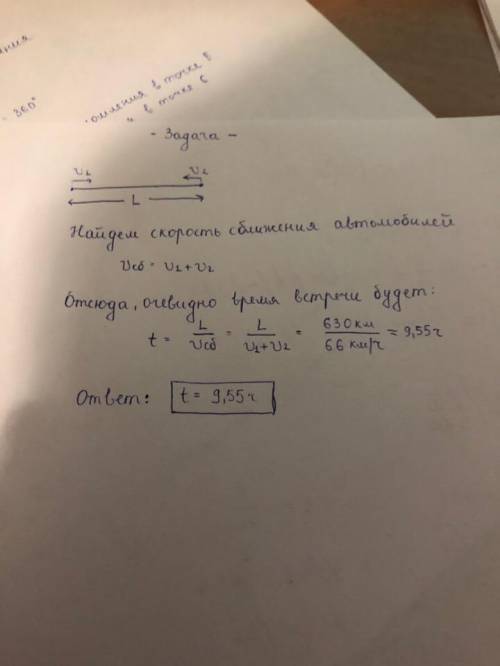 360°
в точке
в точке
- Задача -
υ₁ υ₂
L
Найдем скорость сближения автомобилей
υсб = υ₁ + υ₂
Отсюда, очевидно время встречи будет:
t = L/υсб = L/(υ₁+υ₂) = 630 км/66 км/ч = 9,55ч
Ответ: t = 9,55 ч